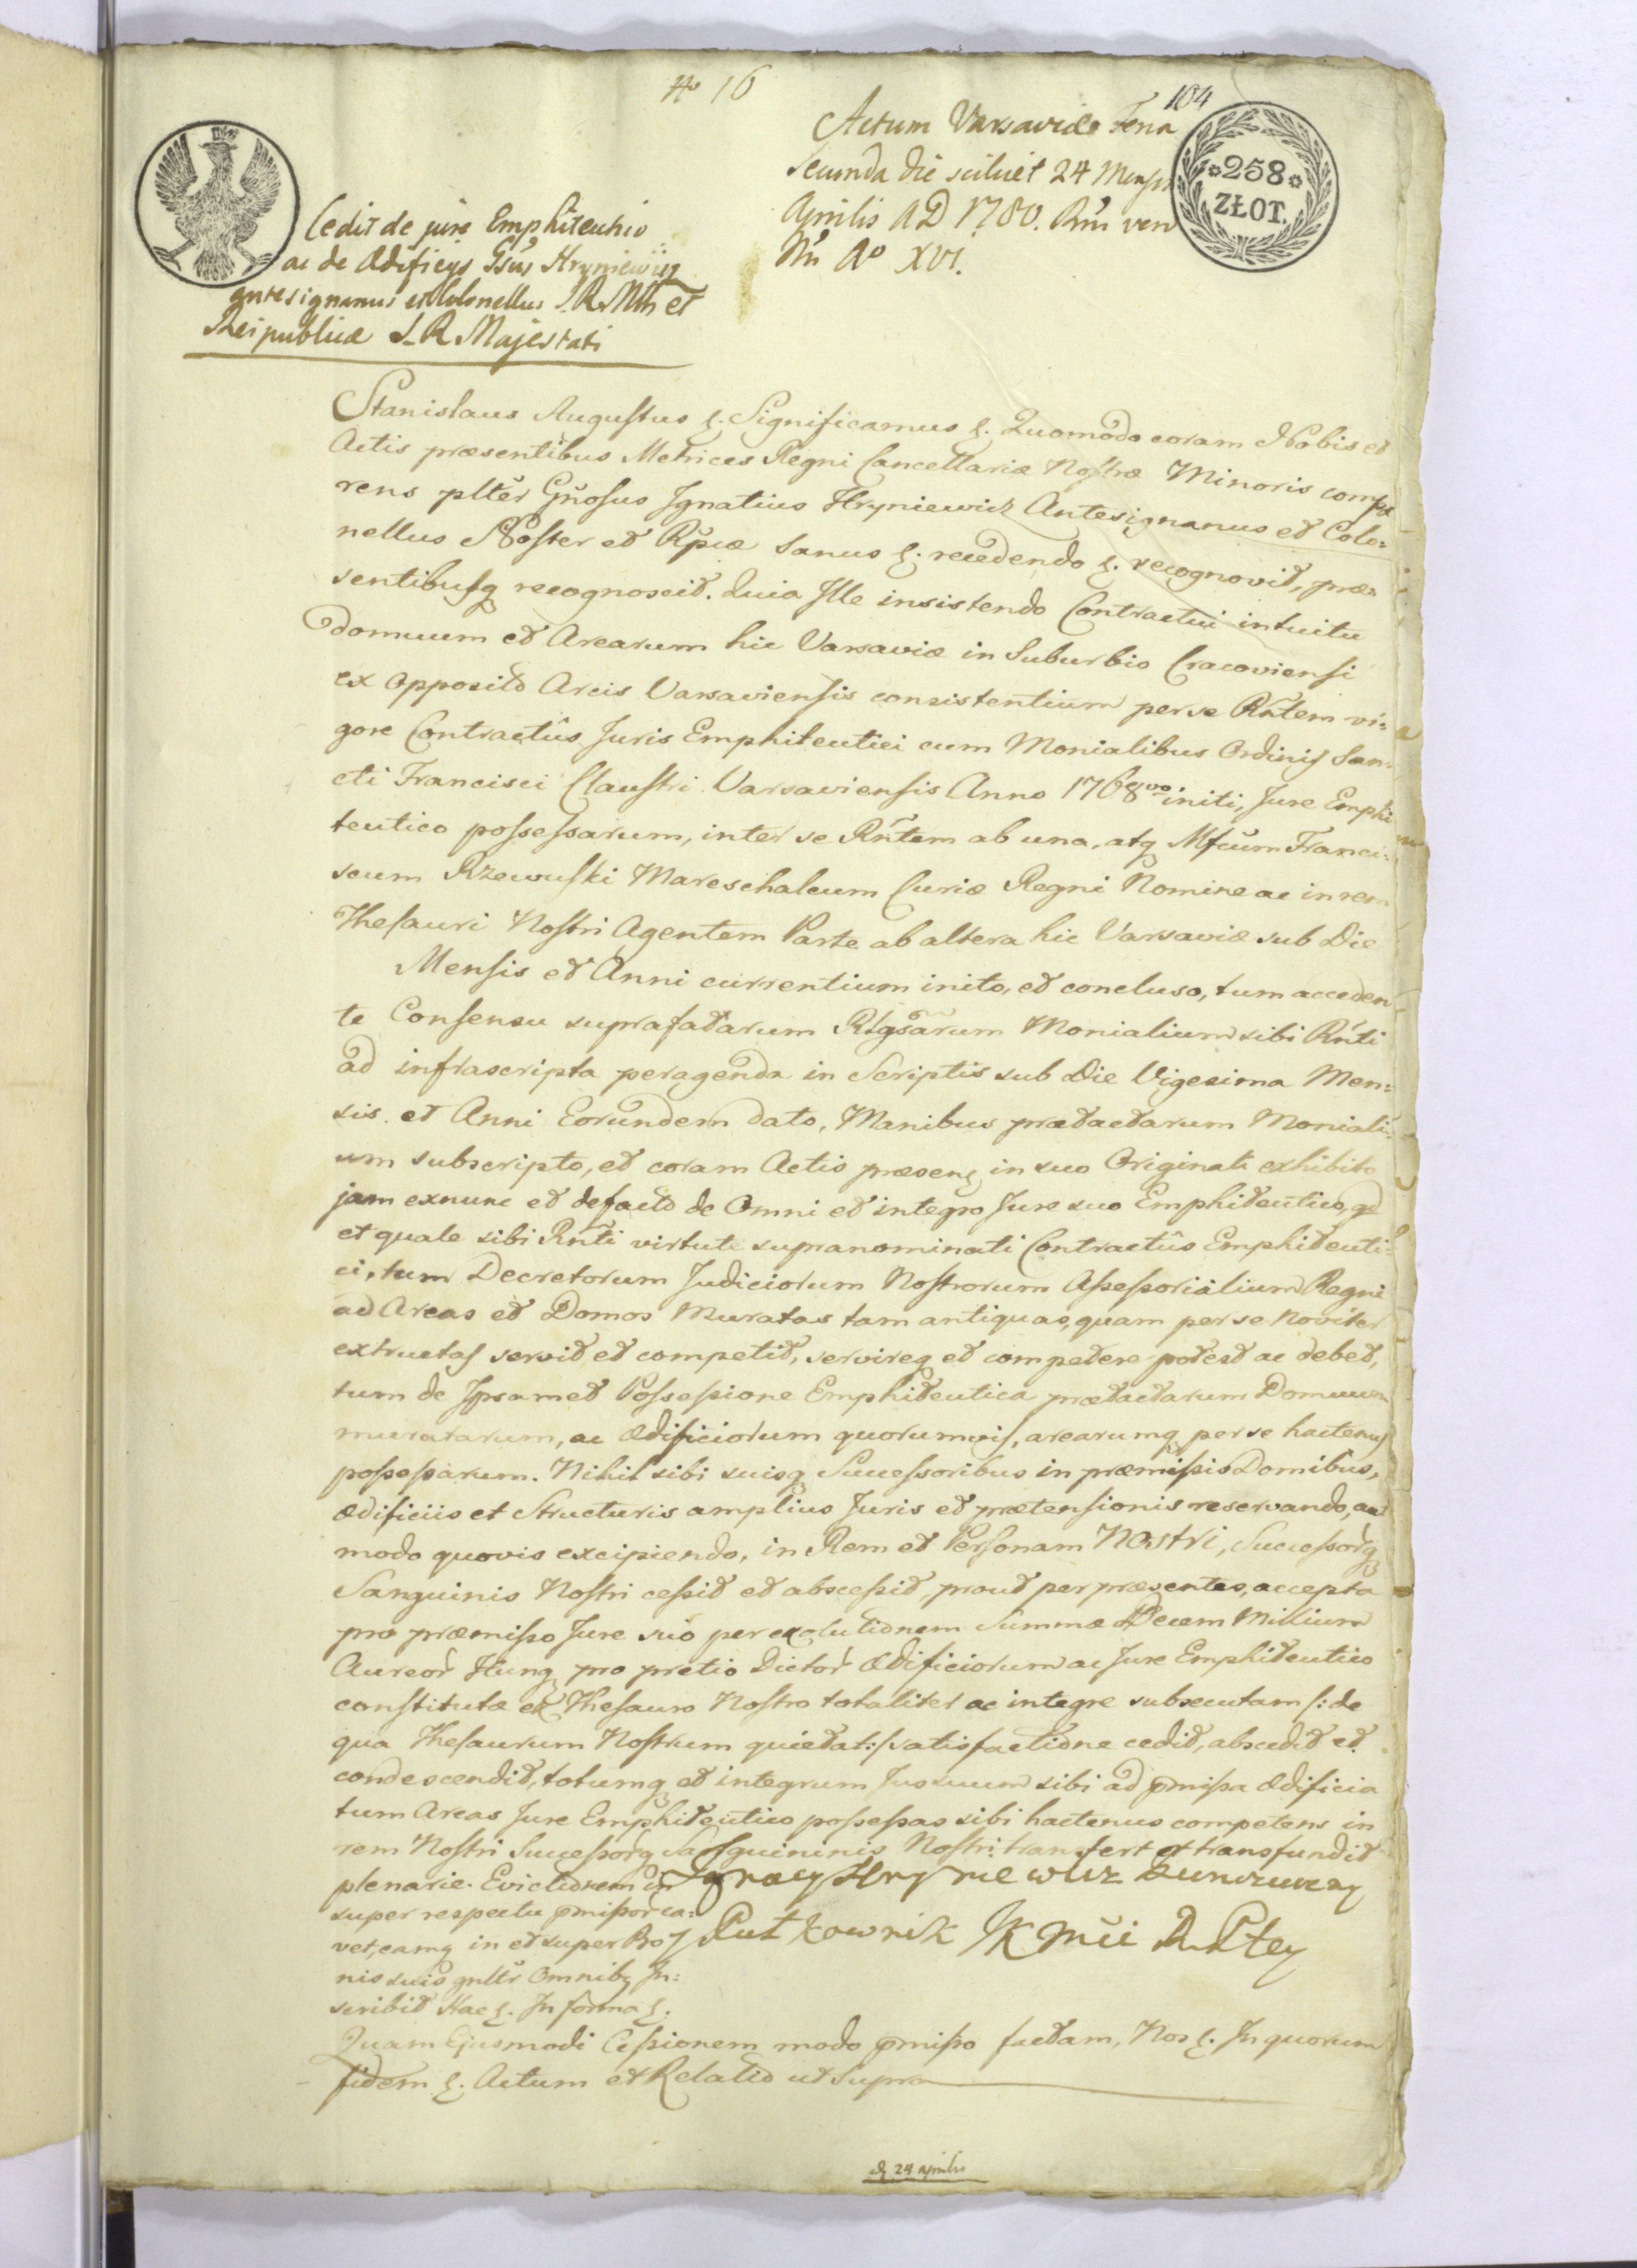 No 16
104
Actum Varsaviæ Feria
secunda die scilicet 24 Mensis
Aprilis AD 1780. Rni vero
Nri Ao XVI.
*258*
ZŁOT.
Cedit de jure Emphiteutico
ac de Ædificijs Gsus Hryniewicz
antesignanus et Colonellus S.R.Mtis et
Reipublicæ S.R. Majestati
Stanislaus Augustus &. Significamus &. Quomodo coram Nobis et
Actis præsentibus Metrices Regni Cancellariæ Nostræ Minoris compa
rens plter Gnosus Ignatius Hryniewicz Antesignanus et Colo=
nellus Noster et Rpcæ sanus &. recedendo &. recognovit, præ=
sentibusq recognoscit. Quia Ille insistendo Contractui intuitu
domuum et Arearum hic Varsaviæ in Suburbio Cracoviensi
ex opposito Arcis Varsaviensis consistentium per se Rntem vi=
gore Contractûs Juris Emphiteutici cum Monialibus Ordinis San=
cti Francisci Claustri Varsaviensis Anno 1768vo initi, Jure Emphi
teutico possessarum, inter se Rntem ab una, atq Mfcum Franci=
scum Rzewuski Mareschalcum Curiæ Regni Nomine ac in rem
Thesauri Nostri Agentem Parte ab altera hic Varsaviæ sub Die
Mensis et Anni currentium inito, et concluso, tum acceden
te Consensu suprafatarum Rlgsarum Monialium sibi Rnti
ad infrascripta peragenda in Scriptis sub Die Vigesima Men=
sis et Anni Eorundem dato, Manibus prætactarum Moniali=
um subscripto, et coram Actis præsens in suo Originali exhibito
jam exnunc et defacto de Omni et integro Jure suo Emphiteutico, qd
et quale sibi Rnti virtute supranominati Contractûs Emphiteuti=
ci, tum Decretorum Judiciorum Nostrorum Assessorialium Regni
ad Areas et Domos Muratas tam antiquas, quam per se Noviter
extructas servit et competit, servireq et competere potest ac debet,
tum de Ipsamet Possessione Emphiteutica prætactarum Domuum
muratarum, ac ædificiorum quorumvis, arearumq per se hactenus
possessarum. Nihil sibi suisq Successoribus in præmissis Domibus,
ædificiis et Structuris amplius Juris et prætensionis reservando, aut
modo quovis excipiendo, in Rem et Personam Nostri, Successorq
Sanguinis Nostri cessit et abscessit, prout per præsentes, accepta
pro præmisso Jure suo per exolutionem Summæ Decem Millium
Aureor Hung pro pretio dictor Ædificiorum ac Jure Emphiteutico
constitutæ ex Thesauro Nostro totaliter ac integre subsecutam /: de
qua Thesaurum Nostrum quietat :/ satisfactione cedit, abscedit et
condescendit, totumq et integrum Jus suum sibi ad pmissa ædificia
tum Areas Jure Emphiteutico possessas sibi hactenus competens in
rem Nostri Successorq Sanguininis Nostri transfert et transfundit
plenarie. Evictionem in
super respectu pmissor ca=
vet, eamq in et super Bo
nis suis gnltr Omnibq In=
scribit Hac &. In forma &.
Ignacy Hryniewicz
Putkownik JK Mci R Ptey
Quam Ejusmodi Cessionem modo pmisso factam, Nos &. In quorum
fidem &. Actum et Relatio ut Supra
24 Aprilis